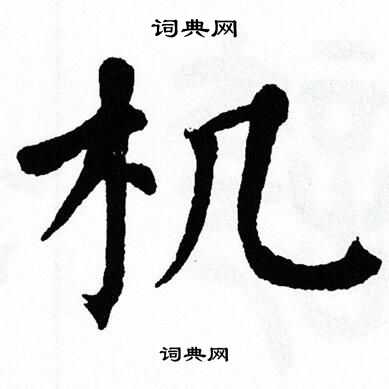 词典网
机
词典网